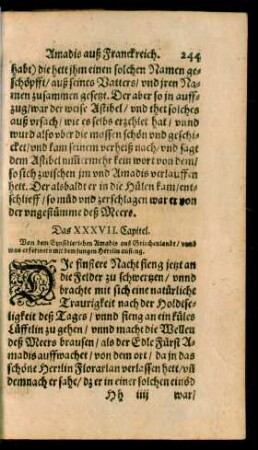 Amadis auß Franckreich. 244
habt) die hett jhm einen solchen Namen ge-
schöpfft/ auß seines Vatters/ vnd jren Na-
men zusammen gesetzt. Der aber so jn auff-
zug/ war der weise Alstibel/ vnd thet solches
auß vrsach/ wie es selbs erzehlet hat / vnnd
wurd also vber die massen schön vnd geschi-
cket/ vnd kam seinem verheiß nach/ vnd sagt
dem Alstibel nim̃ermehr kein wort von dem/
so sich zwischen jm vnd Amadis verlauffen
hett. Der als baldt er in die Hülen kam/ ent-
schlieff / so müd vnd zerschlagen war er von
der vngestümme deß Meers.
Das XXXVII. Capitel.
Von dem Einsidlerischen Amadis aus Griechenlandt/ vnnd
was er ferrners mit dem jungen Herrlin anfieng.
DIe finstere Nacht fieng jetzt an
die Felder zu schwertzen / vnnd
brachte mit sich eine natürliche
Traurigkeit nach der Holdse-
ligkeit deß Tages / vnnd fieng an ein küles
Lüfftlin zu gehen / vnnd macht die Wellen
deß Meers brausen/ als der Edle Fürst A-
madis auffwachet / von dem ort / da jn das
schöne Herrlin Florarlan verlassen hett/ vñ
demnach er sahe/ dz er in einer solchen einöd
Hh iiij war/